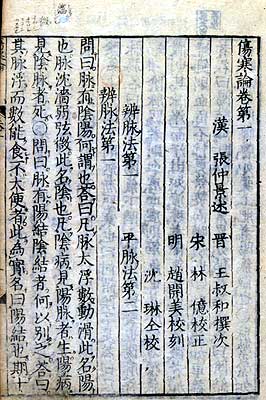 傷寒論卷第一
漢 張仲景述 晉 王叔和撰次
宋 林 億校正
明 趙開美校刻
沈 琳仝校
辨脉法第一 平脉法第二
辨脉法第一
問曰脉有陰陽何謂也荅曰凡脉大浮數動滑此名陽
也脉沈濇弱弦微此名陰也凡陰病見陽脉者生陽病
見陰脉者死○問曰脉有陽結陰結者何以別之荅曰
其脉浮而數能食不大便者此為實名曰陽結也期十